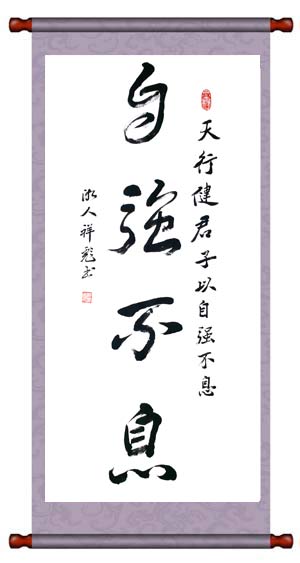 天行健君子以自强不息
自強不息
人祥彪书